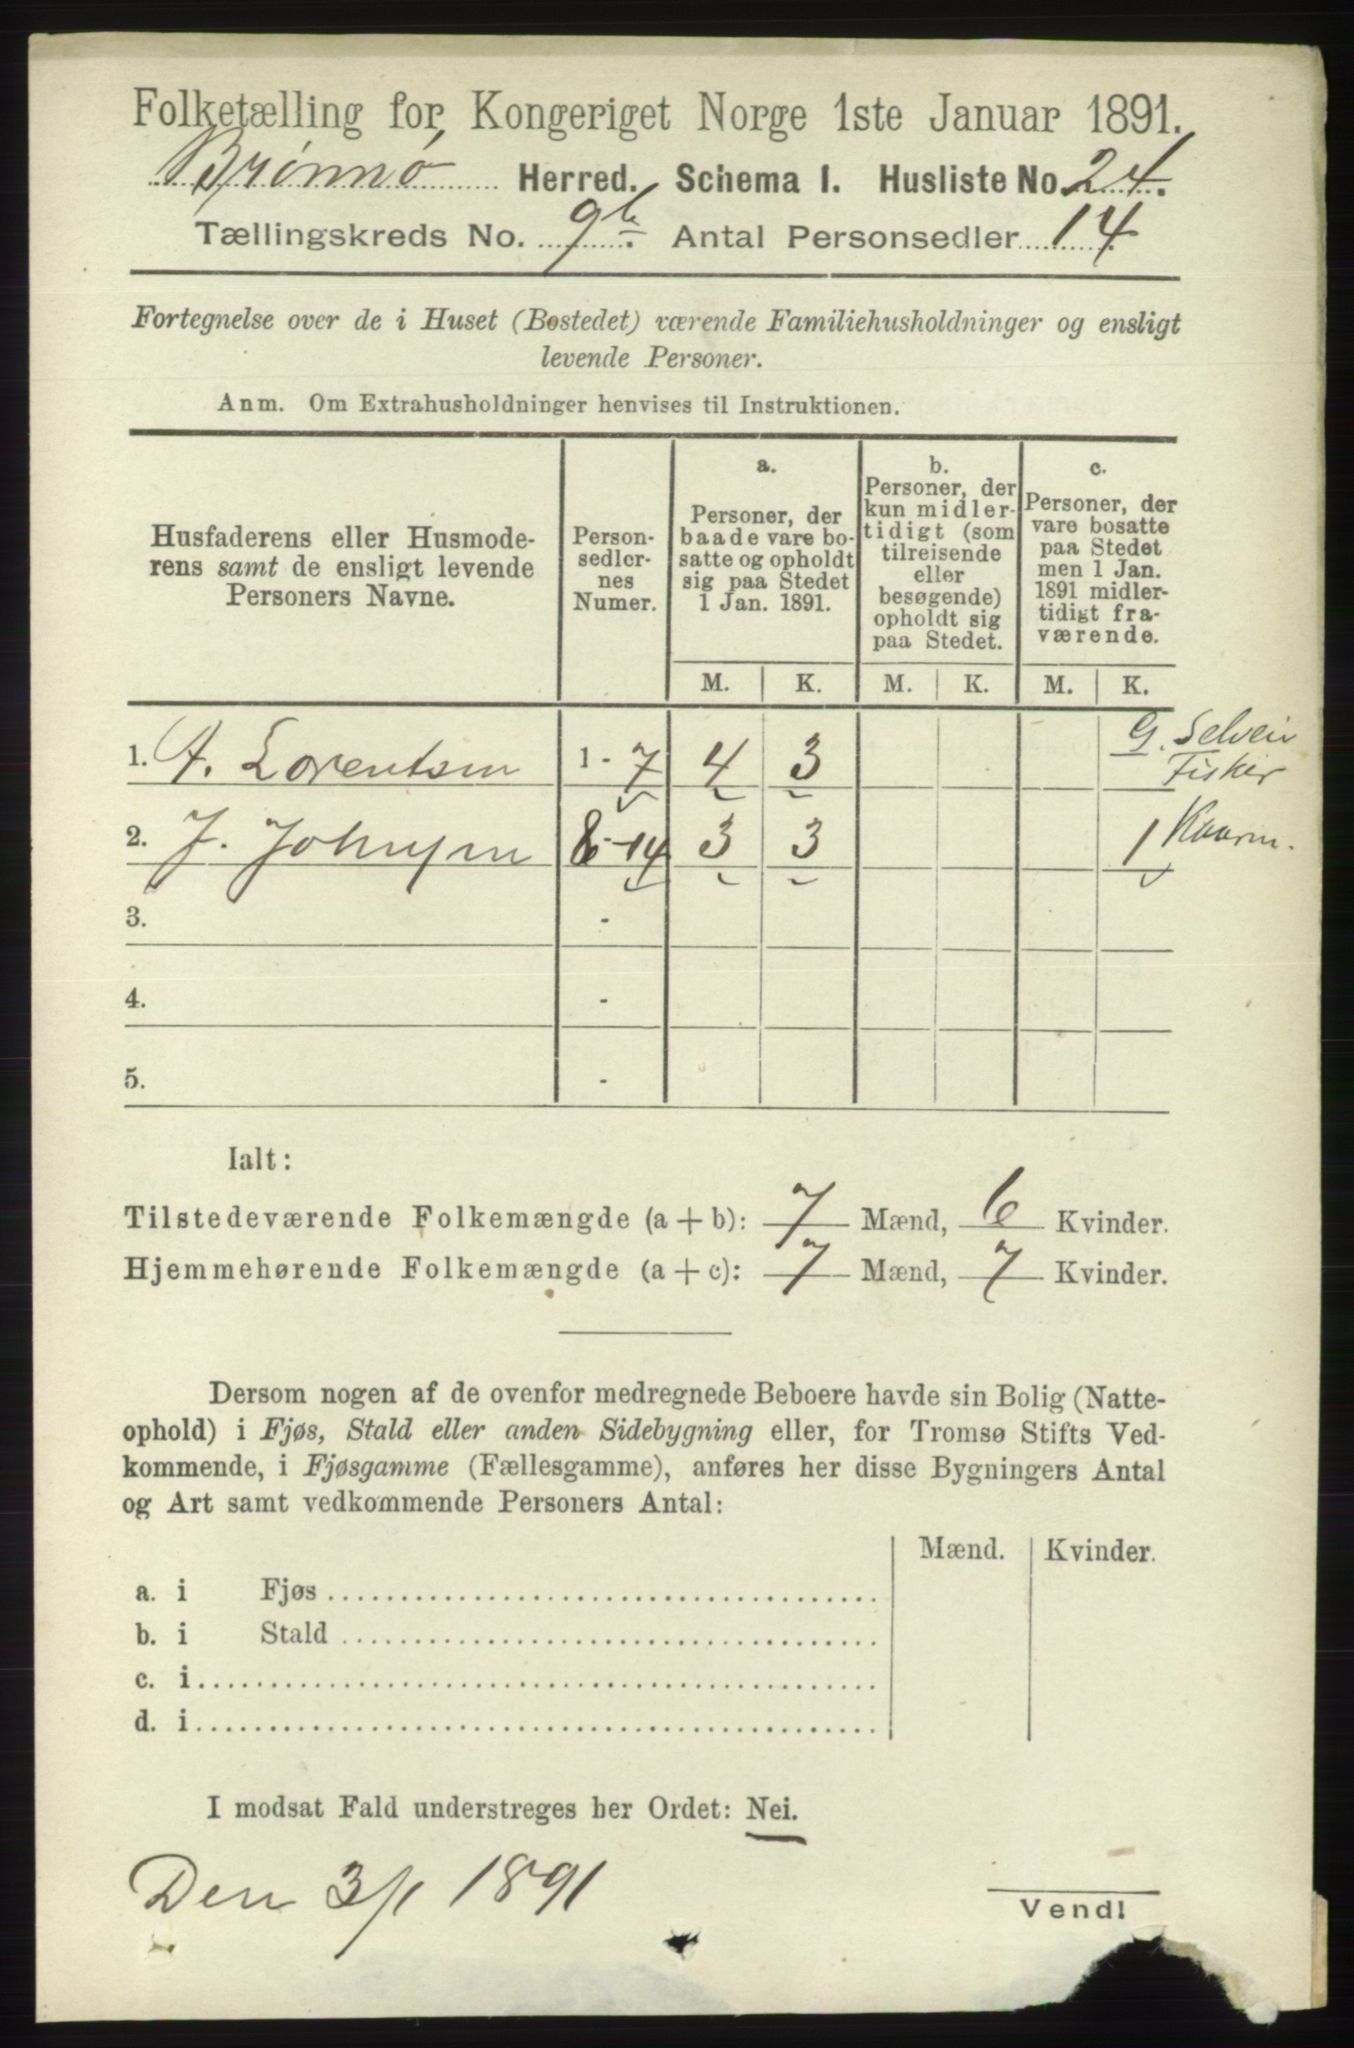 Folketælling for Kongeriget Norge 1ste Januar 1891.
Brønnø Herred. Schema I. Husliste No. 24.
Tællingskreds No. 9b. Antal Personsedler 14
Fortegnelse over de i Huset (Bostedet) værende Familiehusholdninger og ensligt
levende Personer.
Anm. Om Extrahusholdninger henvises til Instruktionen.
Husfaderens eller Husmode-
rens samt de ensligt levende
Personers Navne.
Person-
sedler-
nes
Numer.
a.
Personer, der
baade vare bo-
satte og opholdt
sig paa Stedet
1 Jan. 1891.
b.
Personer, der
kun midler-
tidigt (som
tilreisende
eller
besøgende)
opholdt sig
paa Stedet.
c.
Personer, der
vare bosatte
paa Stedet
men 1 Jan.
1891 midler-
tidigt fra-
værende.
M. K. M. K. M. K.
1. A. Lorentsen 1 - 7 4 3 G. Selveier
Fisker
2. J. Johnsen 8 - 14 3 3 1
3. -
4. -
5. -
Ialt:
Tilstedeværende Folkemængde (a + b): 7 Mænd, 6 Kvinder.
Hjemmehørende Folkemængde (a + c): 7 Mænd, 7 Kvinder.
Dersom nogen af de ovenfor medregnede Beboere havde sin Bolig (Natte-
ophold) i Fjøs, Stald eller anden Sidebygning eller, for Tromsø Stifts Ved-
kommende, i Fjøsgamme (Fællesgamme), anføres her disse Bygningers Antal
og Art samt vedkommende Personers Antal:
Mænd. Kvinder.
a. i Fjøs
b. i Stald
c. i
d. i
I modsat Fald understreges her Ordet: Nei.
Den 3/1 1891
Vend!